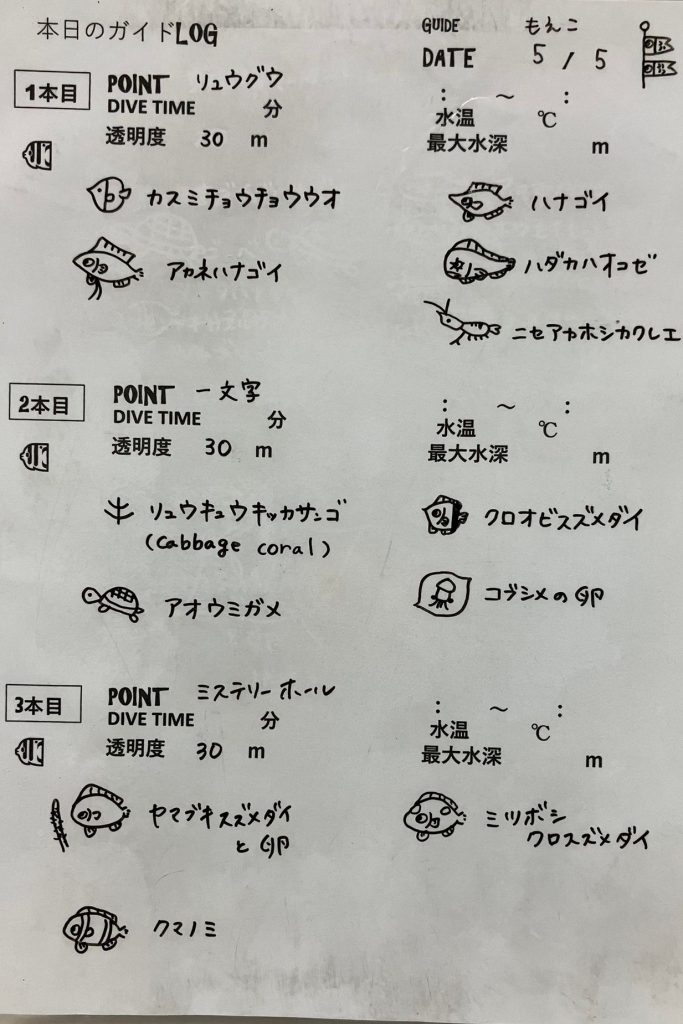 本日のガイドLOG
GUIDE もえこ
DATE 5 / 5
1本目
POINT リュウグウ
DIVE TIME 分 : ～ :
水温 ℃
透明度 30 m 最大水深 m
カスミチョウチョウウオ ハナゴイ
アカネハナゴイ ハダカハオコゼ
ニセアカホシカクレエ
2本目
POINT 一文字
DIVE TIME 分 : ～ :
水温 ℃
透明度 30 m 最大水深 m
リュウキュウキッカサンゴ クロオビスズメダイ
(cabbage coral)
アオウミガメ コブシメの卵
3本目
POINT ミステリーホール
DIVE TIME 分 : ～ :
水温 ℃
透明度 30 m 最大水深 m
ヤマブキスズメダイ ミツボシ
と卵 クロスズメダイ
クマノミ